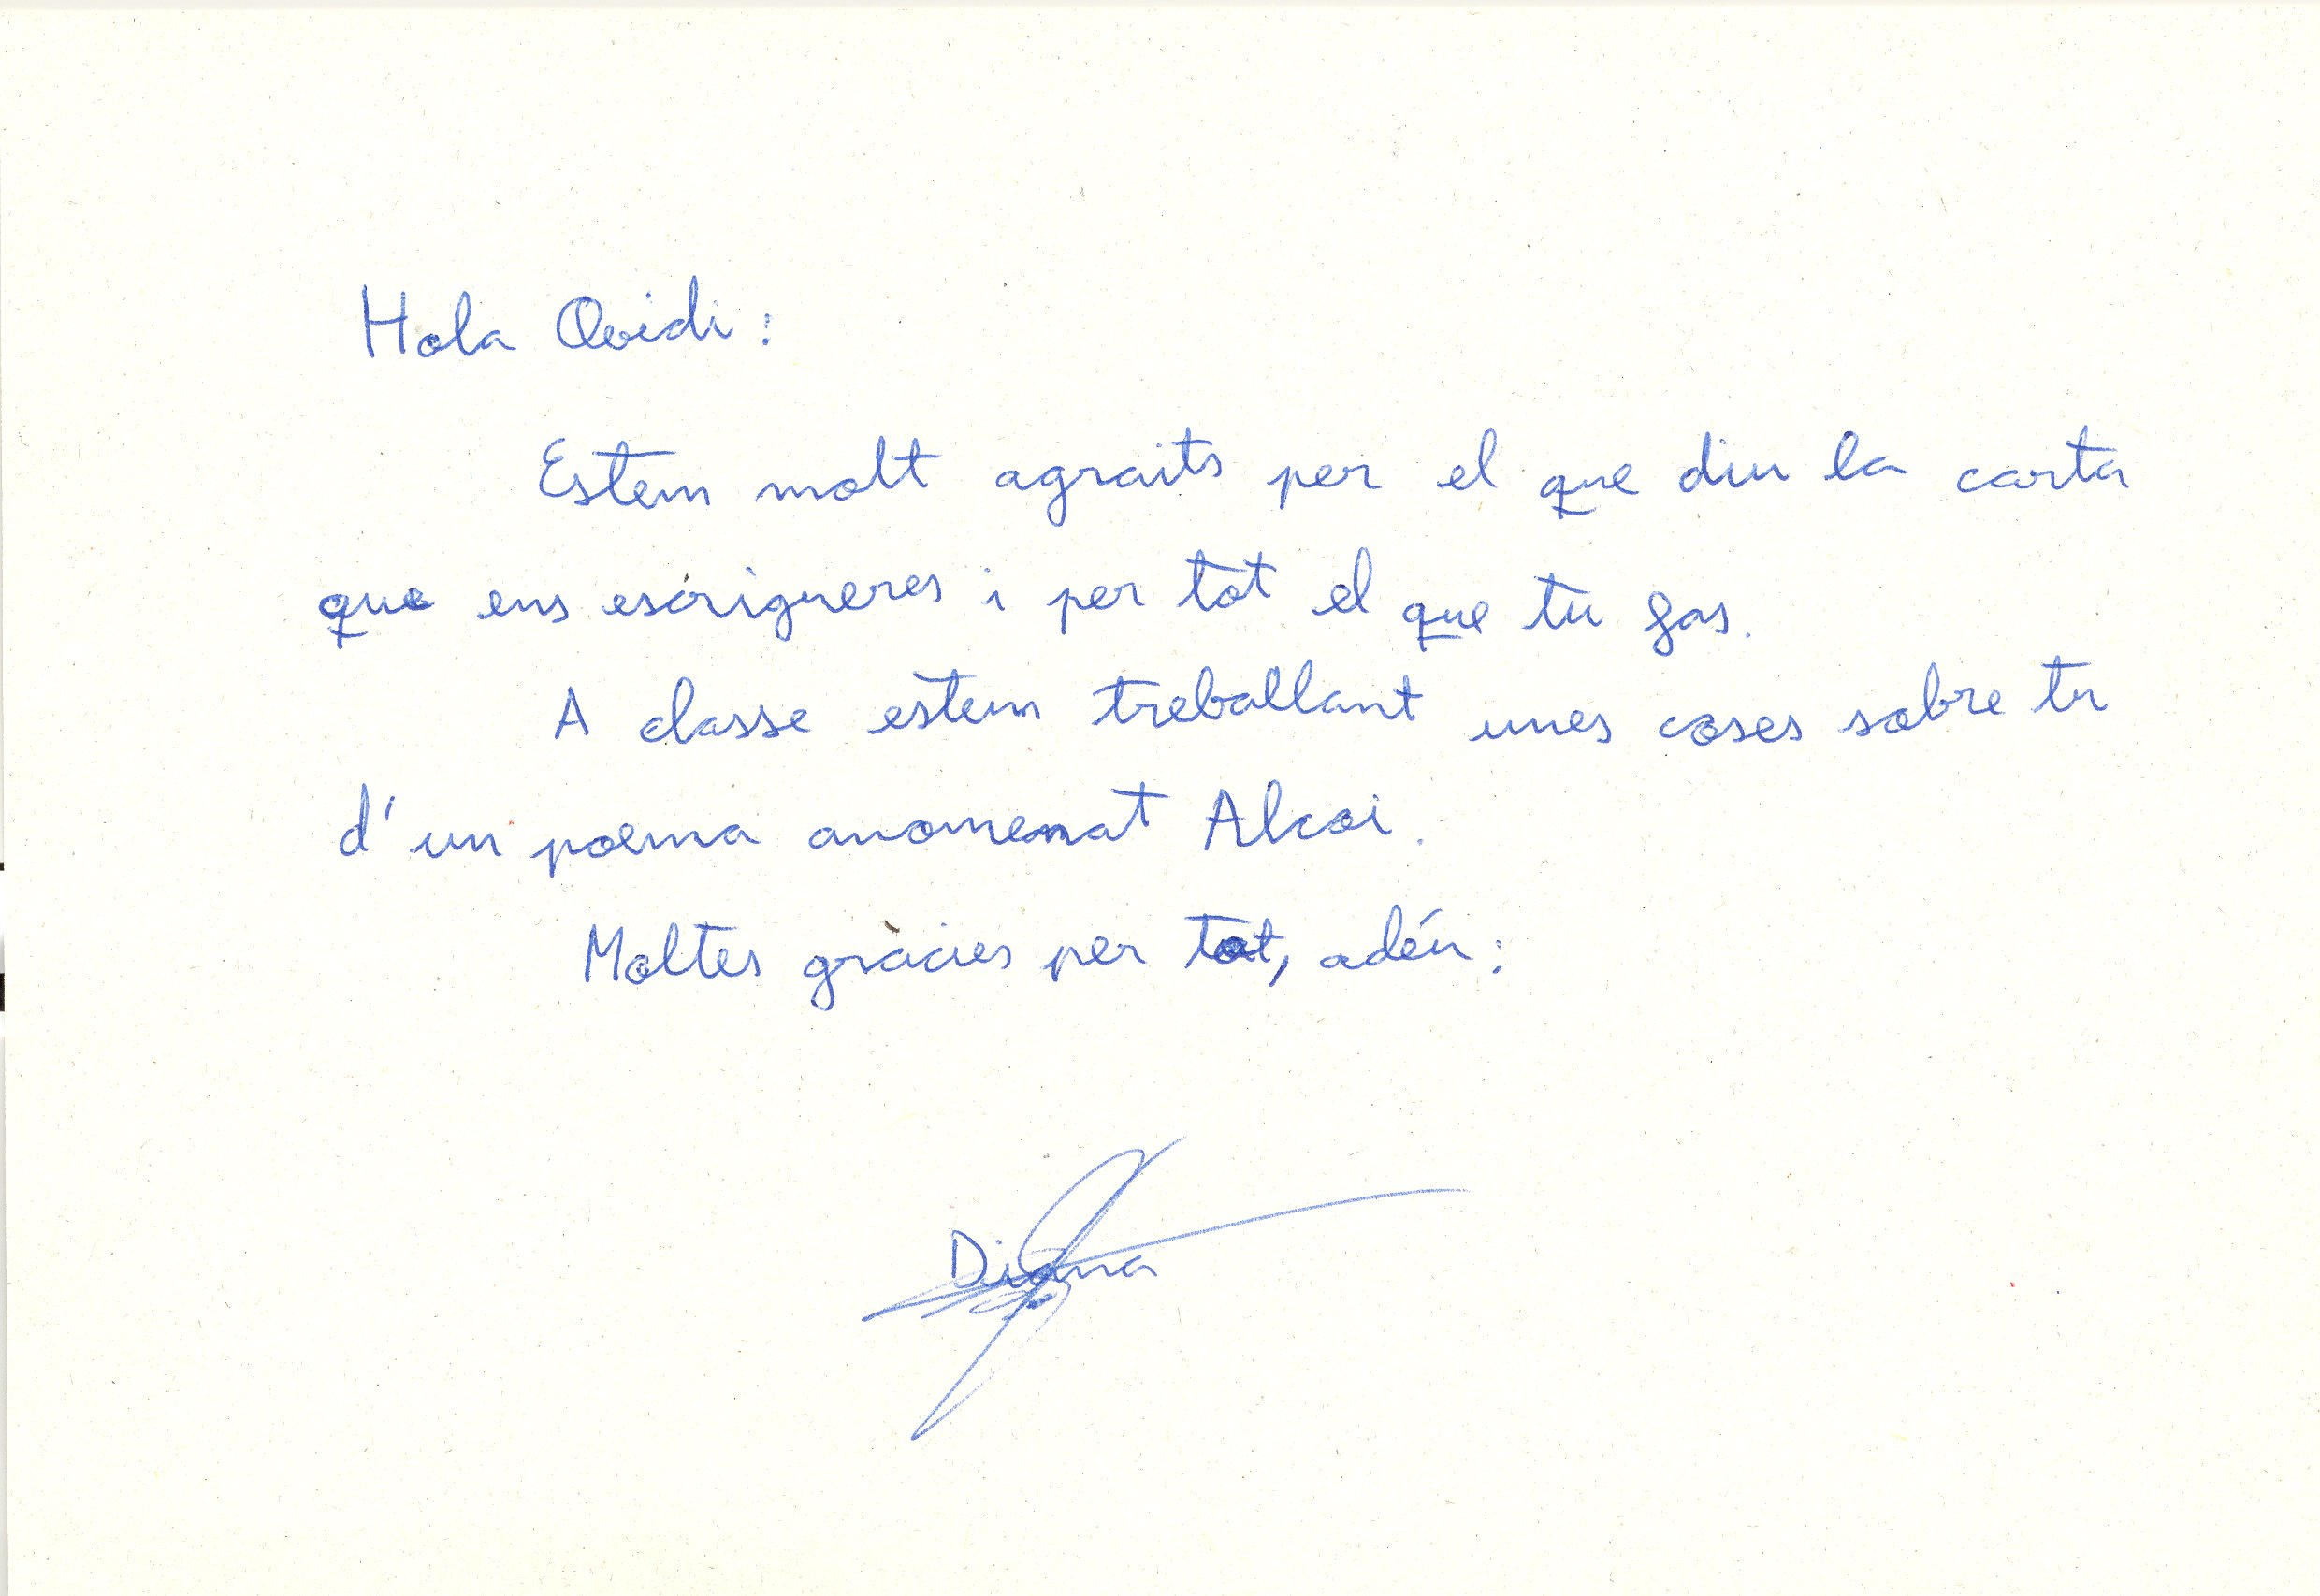 Hola Ovidi:
Estem molt agraits per el que diu la carta
que ens escrigueres i per tot el que tu fas.
A classe estem treballant unes coses sobre tu
d'un poema anomenat Alcoi.
Moltes gràcies per tot, adéu:
Diana